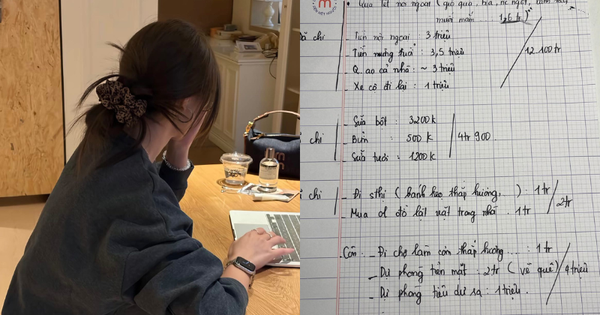 - Quà tết nội ngoại (giỏ quà, hoa, nước ngọt, bánh kẹo
mứt mắm 1,6 tr)
ã chi - Tiền nội ngoại 3 triệu
- Tiền mừng tuổi : 3,5 triệu
- Q. áo cả nhà : ~ 3 triệu
- Xe cộ đi lại : 1 triệu
12.100tr
- Sữa bột : 3200k
chi - Bỉm : 500k
- Sữa tươi : 1200k
4tr 900
i chi - Đi sthi (bánh kẹo thắp hương, ) 1tr
- Mua ol đồ lặt vặt trong nhà . 1tr
2tr
Còn : - Đi chợ làm cơm thắp hương ... : 1tr
- Dự phòng tiền mặt : 2tr (về quê)
- Dự phòng tiêu dư ra : 1 triệu.
4 triệu